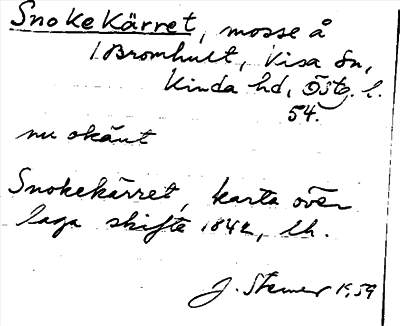 Snokekärret, mosse å
1 Bromhult, Kisa sn,
Kinda hd, Östg. l.
54.
nu okänt
Snokekärret, karta över
laga skifte 1842, lh.
J. Stemer 1959